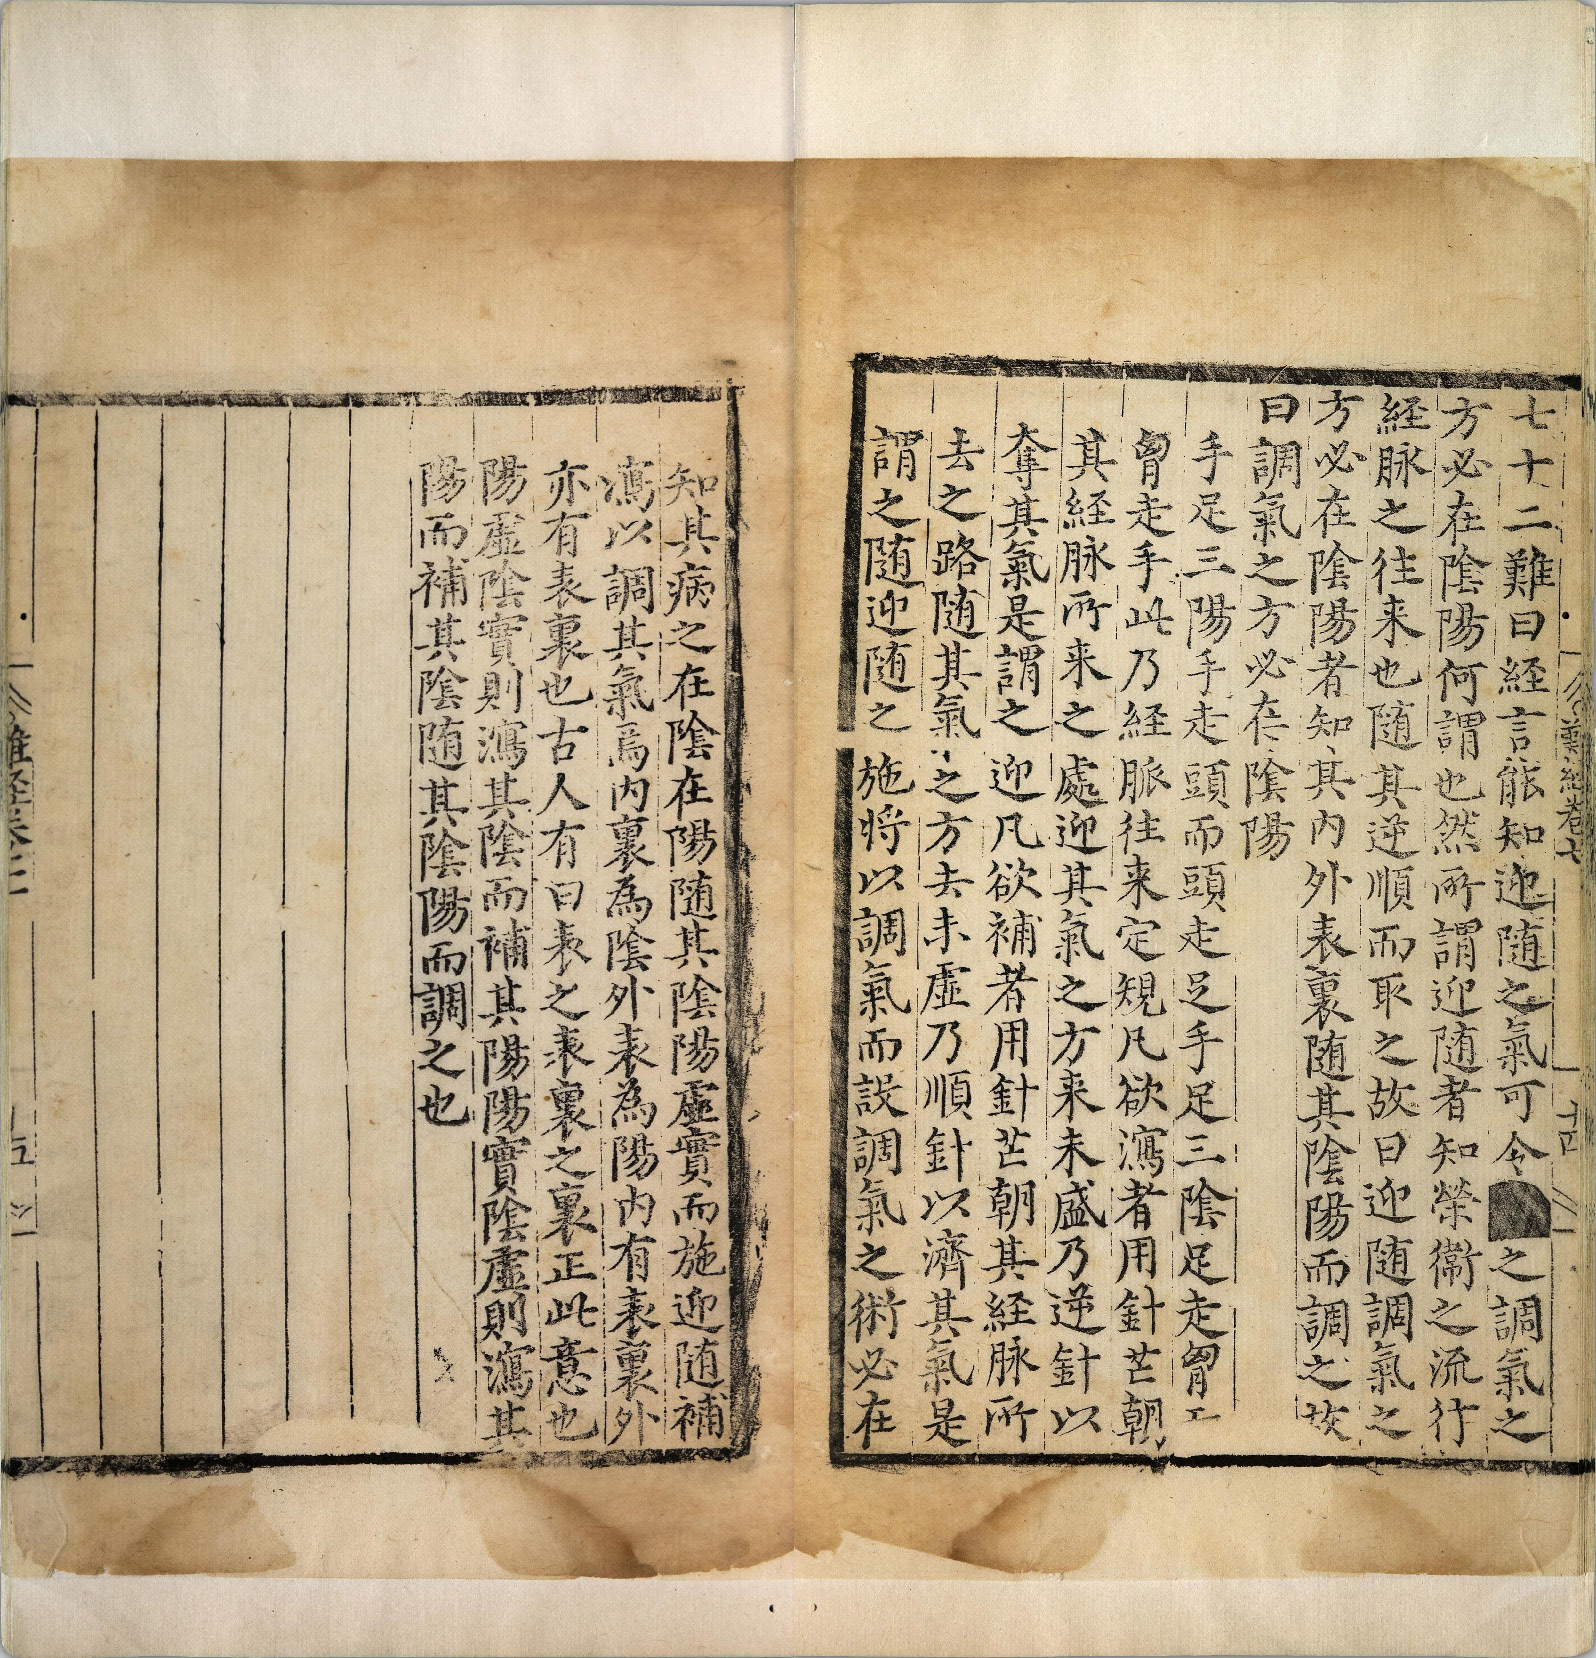 七十二難曰經言能知迎随之氣可令之調氣之
方必在隂陽何謂也然所謂迎随者知榮衞之流行
經脉之往来也随其逆順而取之故曰迎随調氣之
方必在隂陽者知其内外表裏随其隂陽而調之故
曰調氣之方必在隂陽
手足三陽手走頭而頭走足手足三隂足走胷
胷走手此乃經脈往来定䂓凡欲瀉者用針芒朝
其經脉所来之處迎其氣之方来未盛乃逆針以
奪其氣是謂之迎凡欲補者用針芒朝其經脉所
去之路随其氣之方去未虛乃順針以濟其氣是
謂之随迎随之施將以調氣而設調氣之術必在
難經卷七
知其病之在隂在陽随其隂陽虛實而施迎随補
瀉以調其氣焉内裏為隂外表為陽内有表裏外
亦有表裏也古人有曰表之表裏之裏正此意也
陽虛隂實則瀉其隂而補其陽陽實隂虛則瀉其
陽而補其隂随其隂陽而調之也